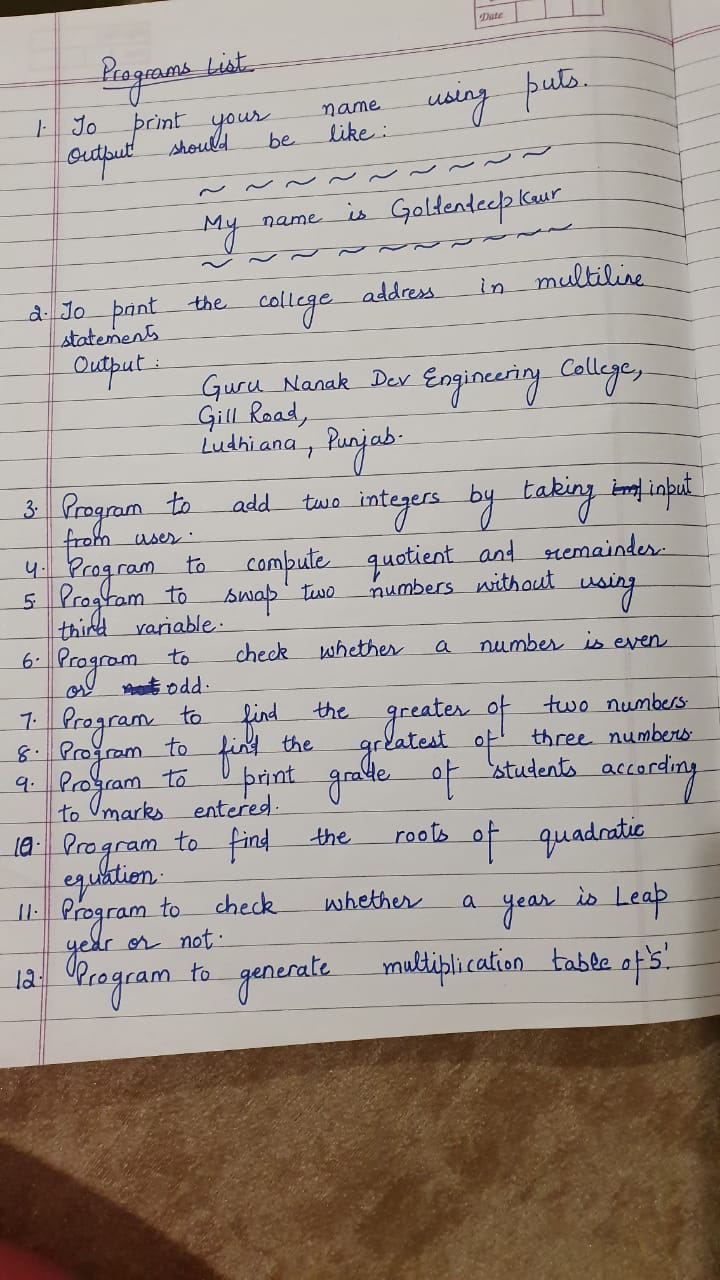 Date
Programs List
1. To print your name using puts.
Output should be like:
~ ~ ~ ~ ~ ~ ~ ~ ~
My name is Goldendeep Kaur
~ ~ ~ ~ ~ ~ ~ ~ ~ ~
2. To print the college address in multiline
statements
Output :
Guru Nanak Dev Engineering College,
Gill Road,
Ludhiana, Punjab.
3. Program to add two integers by taking input
from user.
4. Program to compute quotient and remainder.
5 Program to swap two numbers without using
third variable.
6. Program to check whether a number is even
or odd.
7. Program to find the greater of two numbers
8. Program to find the greatest of three numbers
9. Program to print grade of students according
to marks entered.
10. Program to find the roots of quadratic
equation.
11. Program to check whether a year is Leap
year or not.
12. Program to generate multiplication table of '5'.